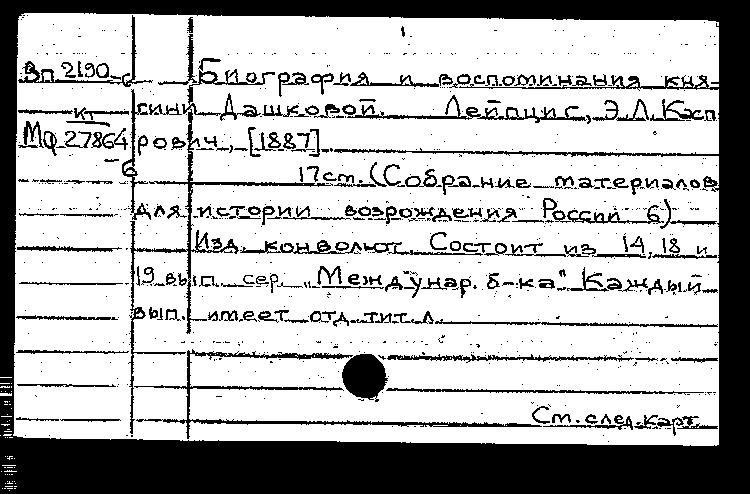 Вп 2190-6 Биография и воспоминания кня-
кт гини Дашковой. Лейпциг, Э.Л. Касп
МФ 27864-6 рович, [1887]
17 cm. (Собрание материалов
для истории возрождения России 6)
Изд. конволют. Состоит из 14, 18 и
19 вып. сер. "Междунар. б-ка" Каждый
вып. имеет отд. тит. л.
См. след. карт.